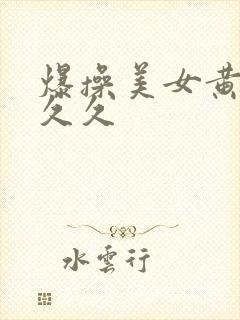 爆操美女黄
久久
水雲行